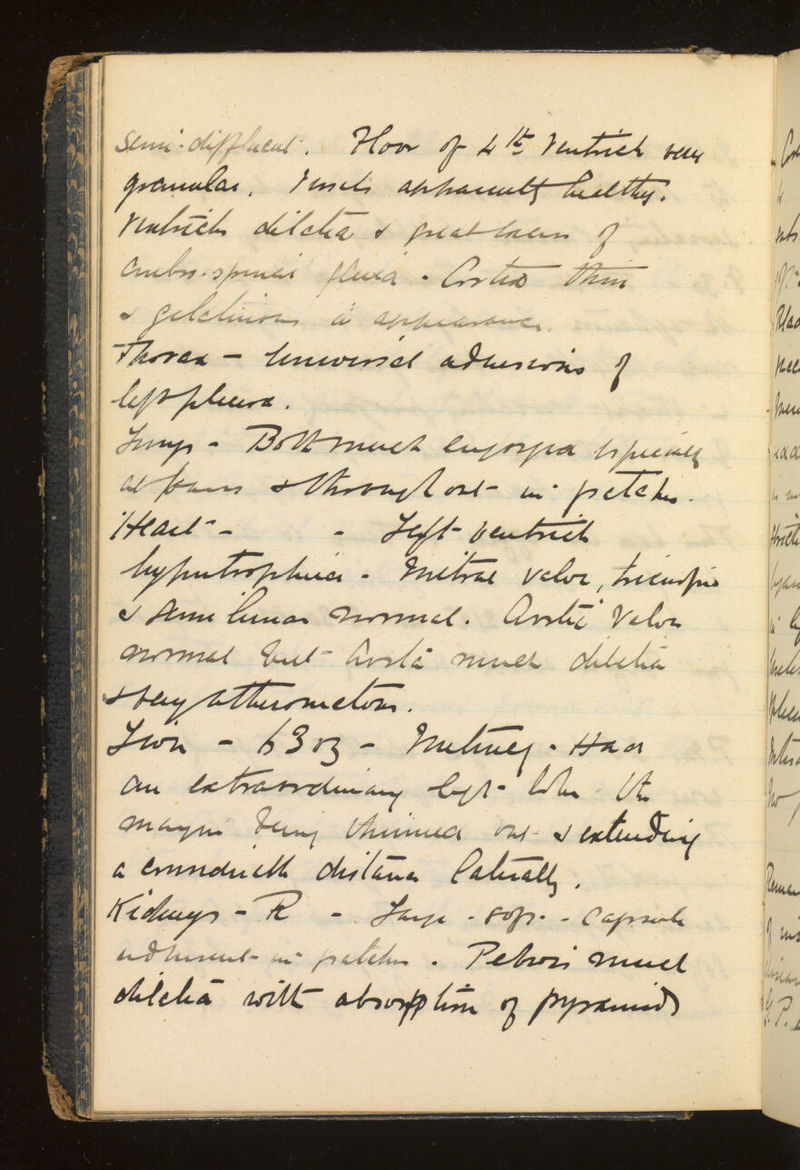 semi-diffluent. Floor of 4th Ventricle very
granular. Vessels apparently healthy.
Ventricles dilated & great excess of
cerebro-spinal fluid. Cortex thin
& gelatinous in appearance.
Thorax - Universal adhesions of
left pleura.
Lungs - Both much engorged especially
at bases & throughout in patches.
Heart - - Left ventricle
hypertrophied. Mitral valve, tricuspid
& semilunar normal. Aortic Valve
normal but Aorta much dilated
& very atheromatous.
Liver - 63 oz - Nutmeg. Had
an extraordinary left lobe the
margin being thinned out & extending
a considerable distance laterally.
Kidneys - R - Large - soft - Capsule
adherent in patches. Pelvis much
dilated with absorption of pyramids